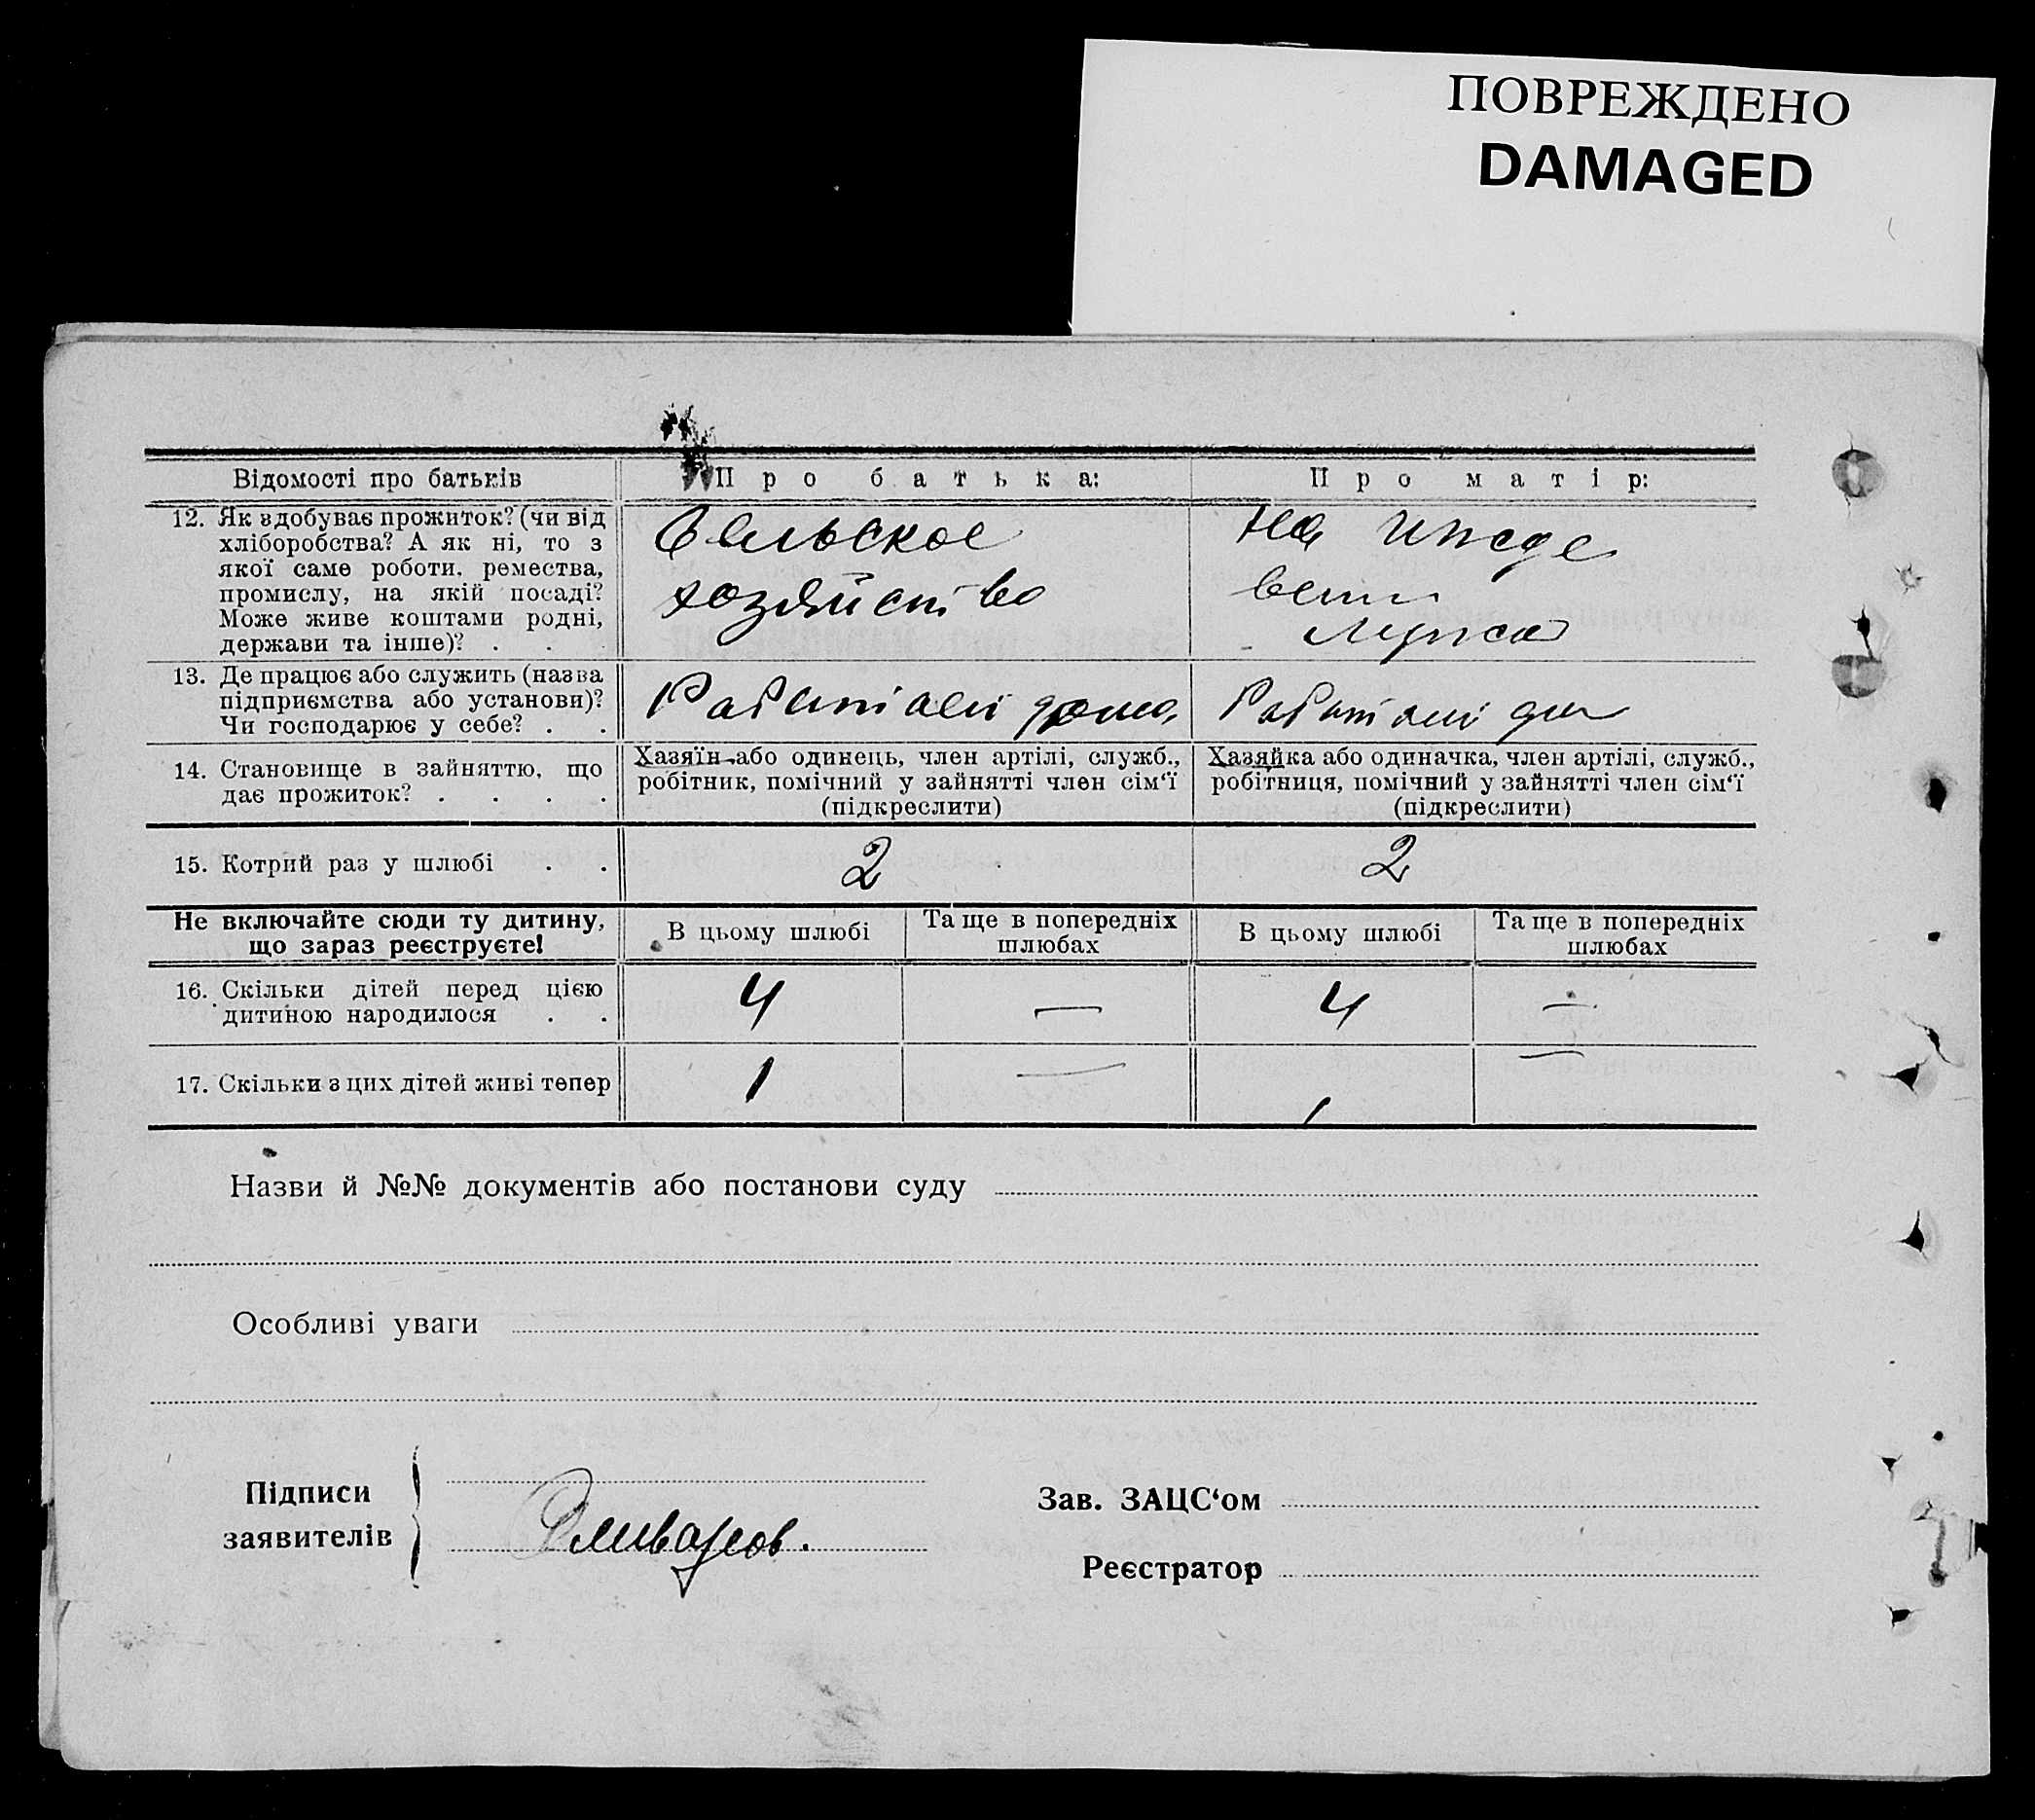 ПОВРЕЖДЕНО
DAMAGED
Відомості про батьків
Про батька:
Про матір:
12. Як здобуває прожиток? (чи від
хліборобства? А як ні, то з
якої саме роботи, ремества,
промислу, на якій посаді?
Може живе коштами родні,
держави та інше)? . .
Сельское
хозяйство
на ижде
вении
мужа
13. Де працює або служить (назва
підприємства або установи)?
Чи господарює у себе? . .
Работает дома
Работает
14. Становище в зайняттю, що
дає прожиток? . . . .
Хазяїн або одинець, член артілі, служб.,
робітник, помічний у зайнятті член сім‘ї
(підкреслити)
Хазяйка або одиначка, член артілі, служб.,
робітниця, помічний у зайнятті член сім‘ї
(підкреслити)
15. Котрий раз у шлюбі . .
2
2
Не включайте сюди ту дитину,
що зараз реєструєте!
В цьому шлюбі
Та ще в попередніх
шлюбах
В цьому шлюбі
Та ще в попередніх
шлюбах
16. Скільки дітей перед цією
дитиною народилося . .
4
—
4
—
17. Скільки з цих дітей живі тепер
1
—
1
—
Назви й №№ документів або постанови суду
Особливі уваги
Підписи
заявителів
Зав. ЗАЦС‘ом
Реєстратор